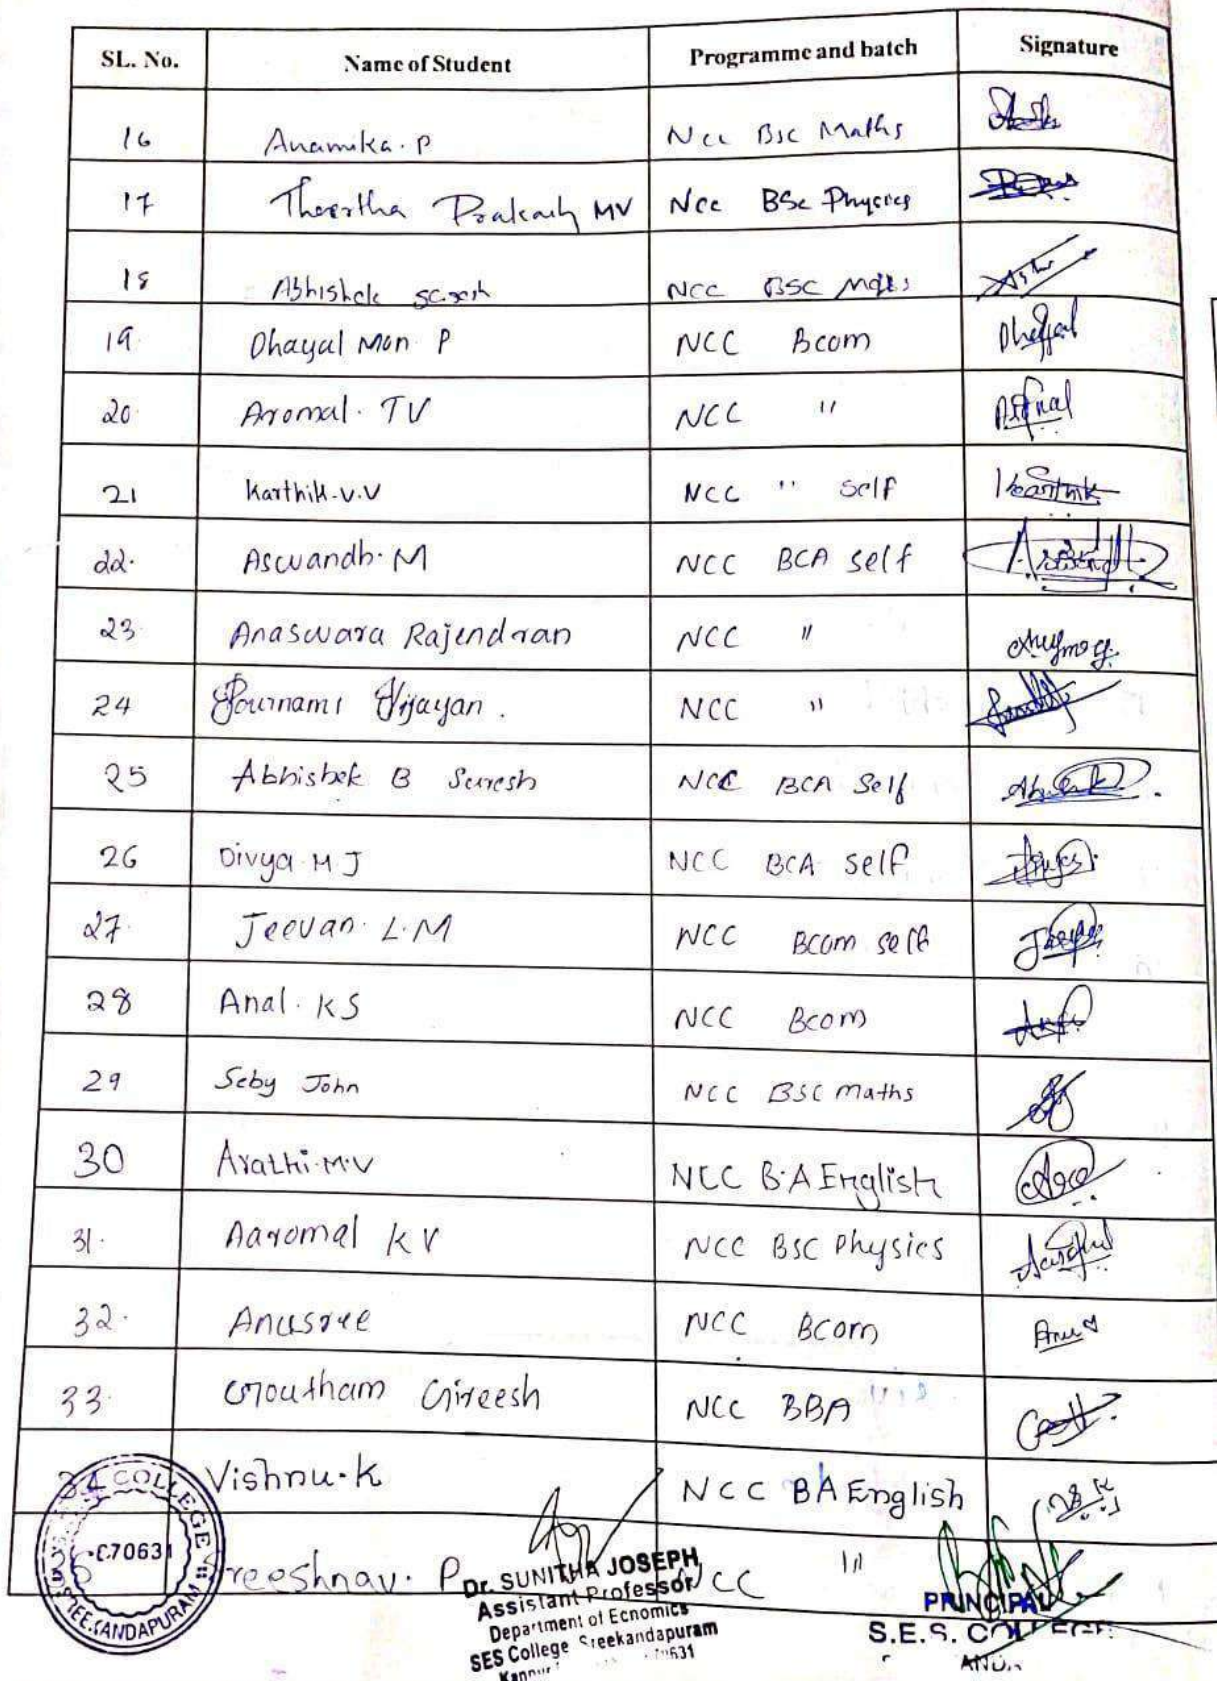 SL. No. Name of Student Programme and batch Signature
16 Anamika. P Ncc Bsc Maths
17 Theertha Prakash MV Ncc BSc Physics
18 Abhishek NCC BSC Maths
19. Dhayal Mon P NCC Bcom Dhayal
20. Aromal. TV NCC "
21 Karthik.V.V NCC " self Karthik
22. Aswandh. M NCC BCA self
23. Anaswara Rajendran NCC "
24 Pournami Vijayan. NCC "
25 Abhishek B Suresh NCC BCA Self
26 Divya M J NCC BCA self
27. Jeevan. L.M NCC Bcom self
28 Anal. KS NCC Bcom
29 Seby John NCC BSC maths
30 Arathi.M.V NCC B.A English
31. Aaromal K V NCC BSC Physics
32. Anusree NCC Bcom Anu
33. Goutham Gireesh NCC BBA
34 Vishnu.K NCC BA English
reeshnav. P NCC "
COLLEGE
670631
SREEKANDAPURAM
Dr. SUNITHA JOSEPH
Assistant Professor
Department of Ecnomics
SES College Sreekandapuram
Kannur
PRINCIPAL
S.E.S. COLLEGE